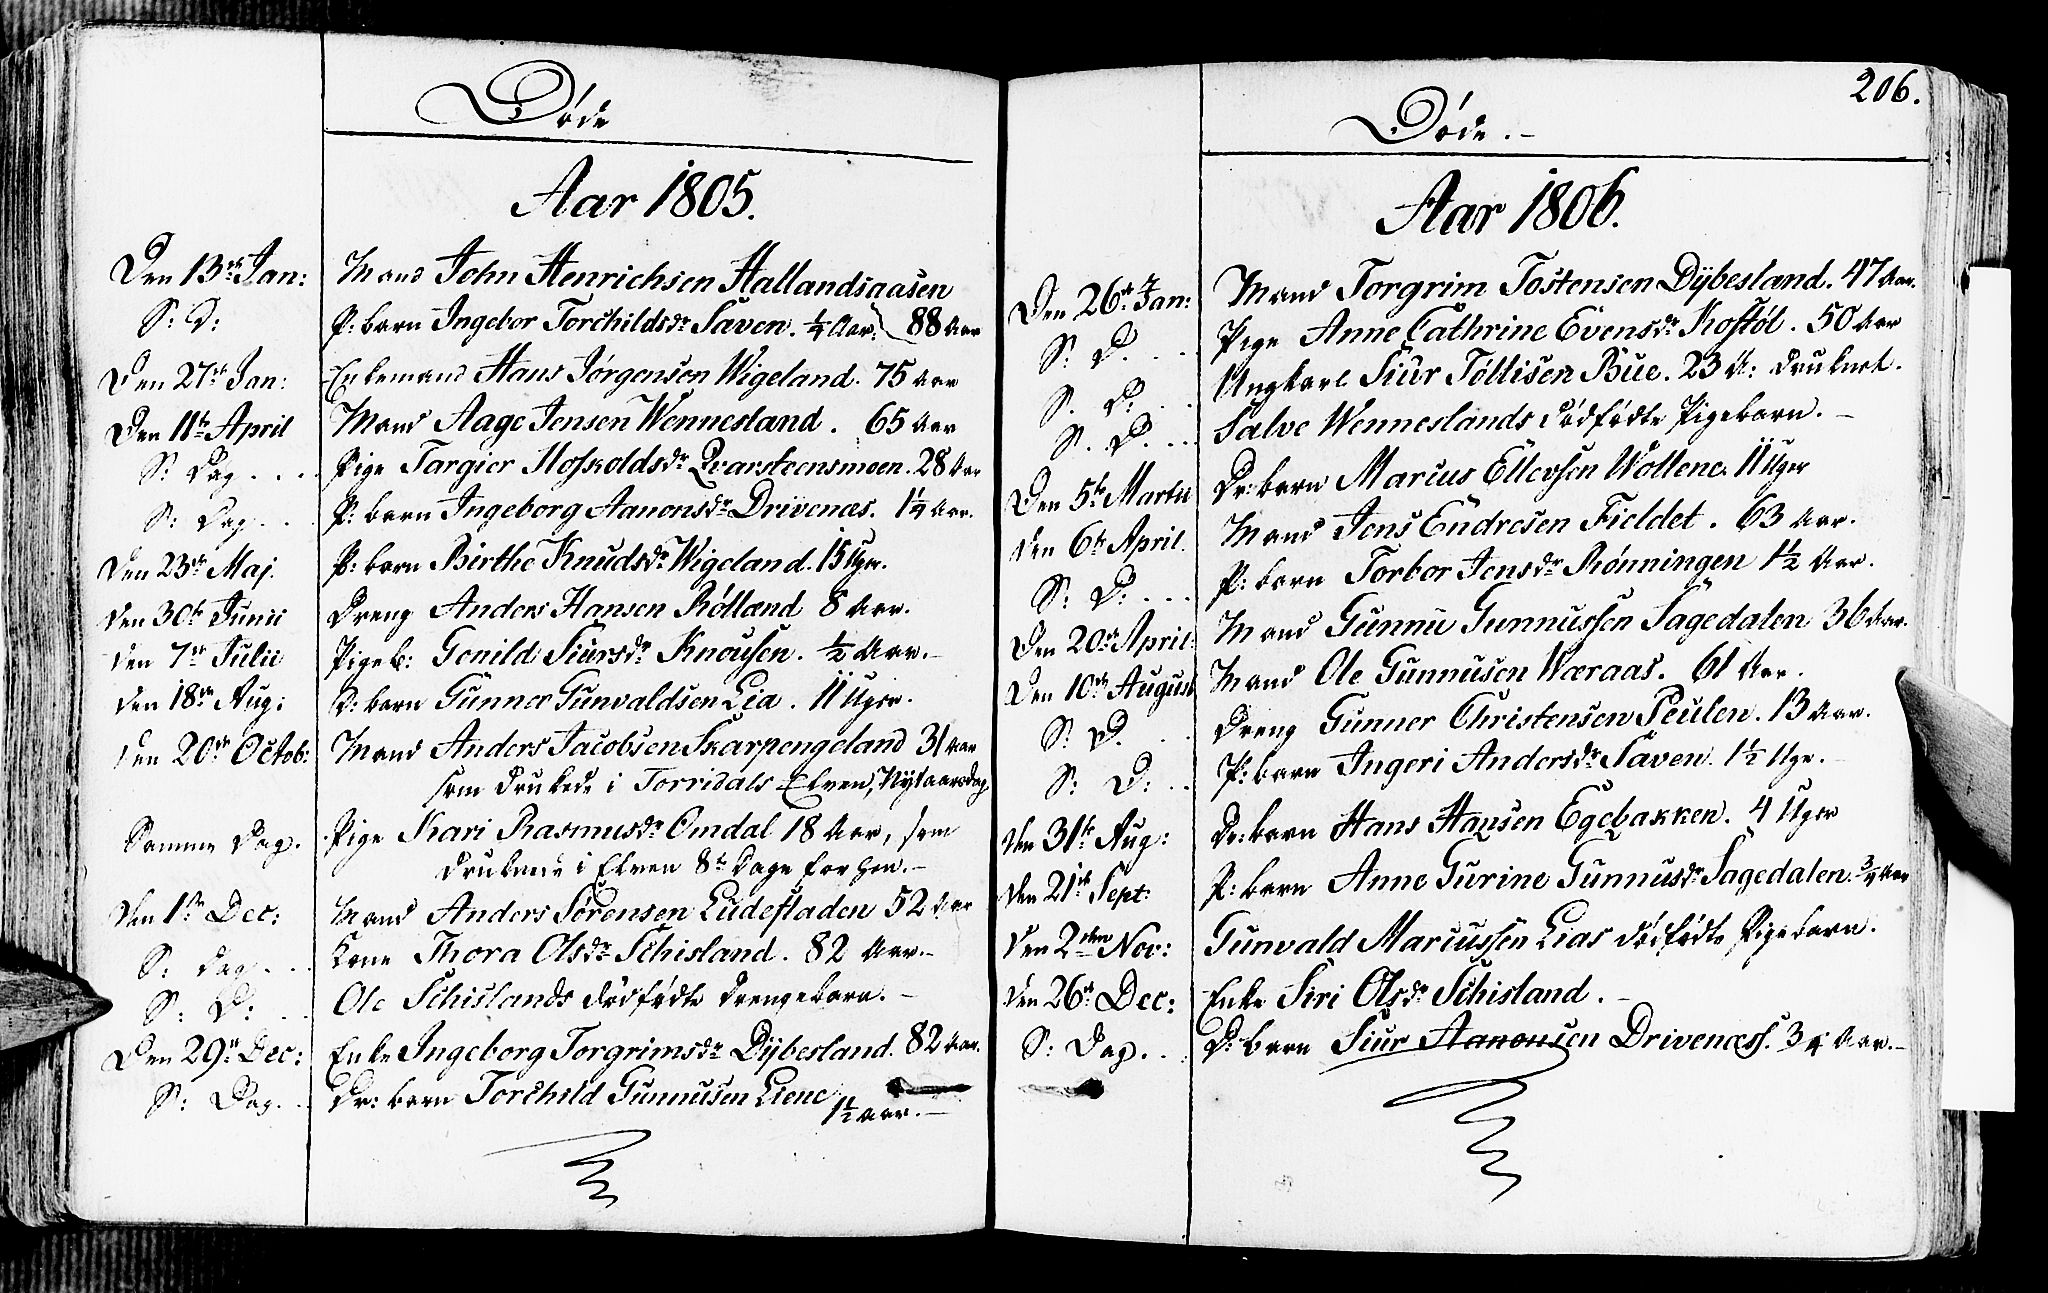 Døde
Aar 1805.
Den 13de Jan: Mand John Henrichsen Hallandsaasen
S: D: P: barn Ingebor Torchildsdr Saven. 1/4 Aar. 88 Aar
Den 27de Jan: Enkemand Hans Jørgensen Wigeland. 75 Aar
Den 11te April Mand Aage Jensen Wennesland. 65 Aar
S: Dag . . . . Pige Targier Hoskoldsdr Qvarsteensmoen. 28 Aar
S: Dag . . . P: barn Ingeborg Aanonsdr Drivenæs. 1 1/4 Aar.
Den 23de Maj. P: barn Birthe Knudsdr Wigeland. 15 Uger.
den 30te Junii Dreng Anders Hansen Røllend 8 Aar.
den 7de Julii Pigeb: Gonild Siursdr Knousen. 1/2 Aar.-
den 18de Aug: D: barn Gunner Gunvaldsen Lia. 11 Uger.
den 20de Octob: Mand Anders Jacobsen Skarpengeland 31 Aar
som druknede i Torridals Elven, Nytaarsdag
Samme Dag. Pige Kari Rasmusdr Omdal 18 Aar, som
druknede i Elven 8te Dage forhen.-
den 1ste Dec: Mand Anders Sørensen Ludefladen 52 Aar
S: dag . . . Kone Thora Olsdr Schisland. 82 Aar.-
S: D: . . . Ole Schislands dødfødte Drengebarn.-
Den 29de Dec: Enke Ingeborg Torgrimsdr Dybesland. 82 Aar.
S: Dag. . . Dr: barn Torchild Gunnusen Liene
1 1/2 Aar.-
206.
Døde.-
Aar 1806.
Den 26de Jan: Mand Torgrim Tostensen Dybesland. 47 Aar.
S: D. . . . Pige Anne Cathrine Evensdr Kostøl. 50 Aar
S. D: . . . Ungkarl Siur Tollisen Bue. 23 A: druknet.
S. D. . . . Salve Wenneslands dødfødte Pigebarn.-
Den 5te Martii Dr: barn Marcus Ellevsen Wollene. 11 Uger
den 6te April. Mand Jens Endresen Fieldet. 63 Aar.
S: D: . . . P: barn Torbor Jensdr Rønningen 1 1/2 Aar.
Den 20de April: Mand Gunnu Gunnussen Sagedalen 36 Aar.
Den 10de August Mand Ole Gunnusen Wæraas. 61 Aar.
S: D. . . . Dreng Gunner Christensen Peulen. 13 Aar.
S: D: . . P: barn Ingeri Andersdr Saven. 1 1/2 Uge.-
den 31te Aug: Dr: barn Hans Hansen Egebakken. 4 Uger
den 21de Sept: P: barn Anne Gurine Gunnusdr Sagedalen. 3/4 Aar
den 2den Nov: Gunvald Marcussen Lias dødfødte Pigebarn.
den 26de Dec: Enke Siri Olsdr Schisland.-
S: Dag. . . D: barn Siur Aanonsen Drivenæs. 3/4 Aar.-